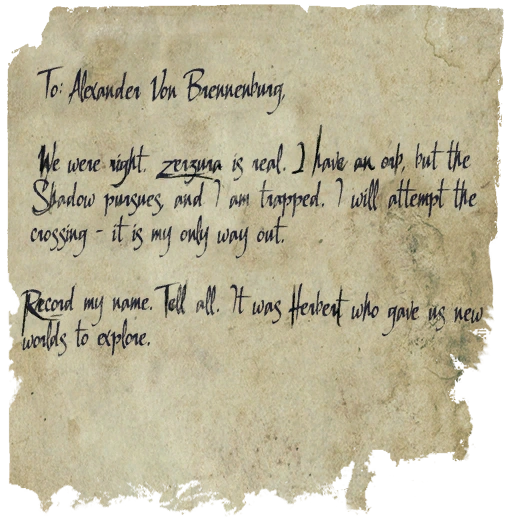 To: Alexander Von Brennenburg,
We were right. zerzura is real. I have an orb, but the
Shadow pursues, and I am trapped. I will attempt the
crossing - it is my only way out.
Record my name. Tell all. It was Herbert who gave us new
worlds to explore.